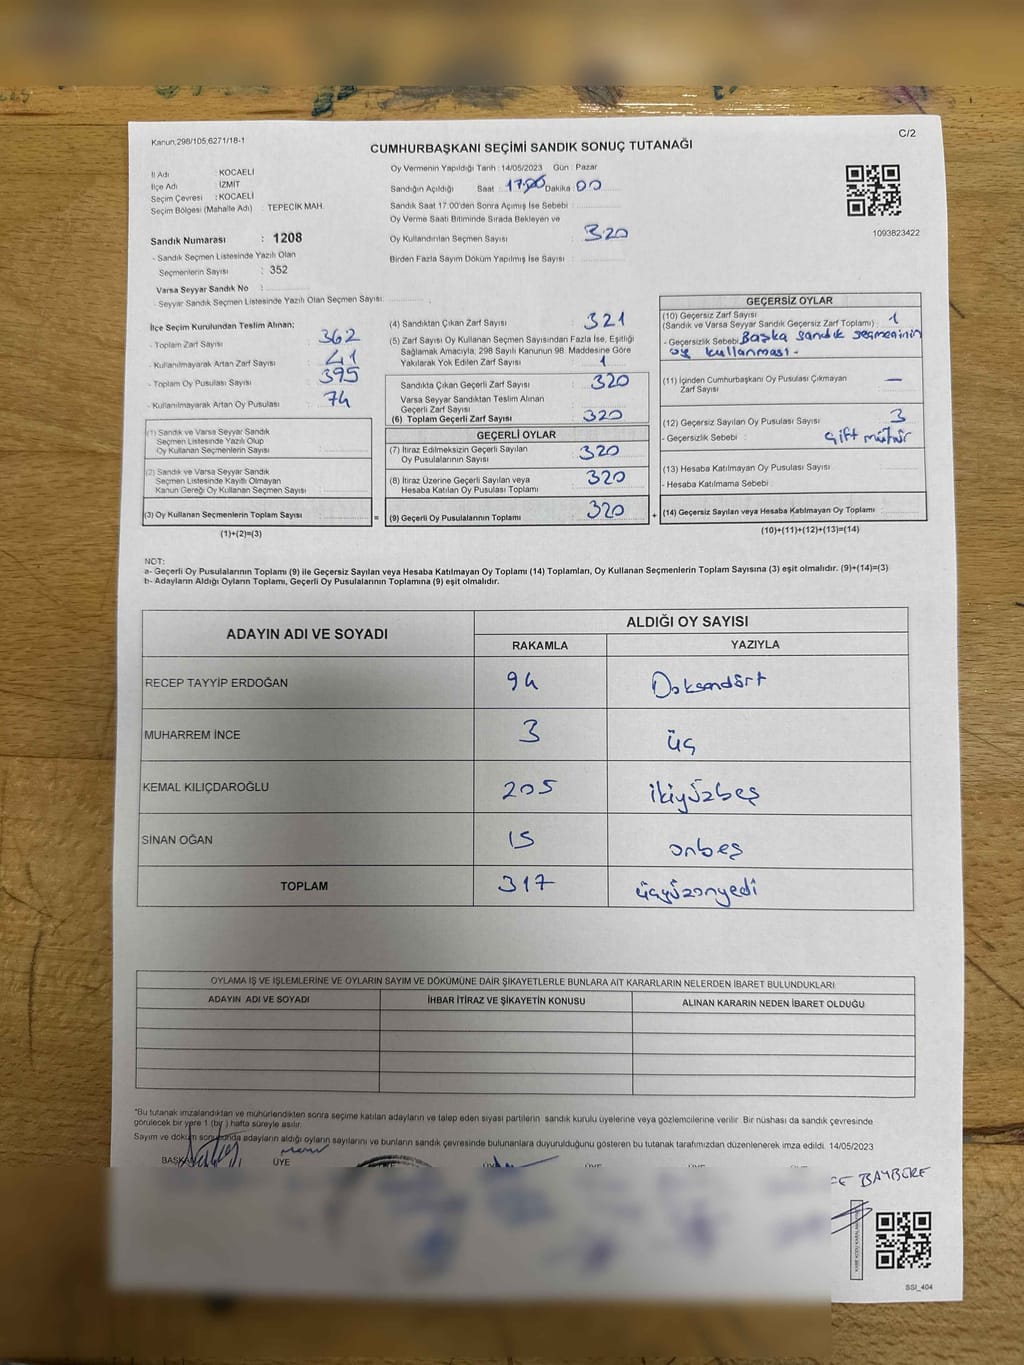 Kanun;298/105;6271/18-1
C/2
CUMHURBAŞKANI SEÇİMİ SANDIK SONUÇ TUTANAĞI
İl Adı : KOCAELİ
İlçe Adı : İZMİT
Seçim Çevresi : KOCAELİ
Seçim Bölgesi (Mahalle Adı) : TEPECİK MAH.
Sandık Numarası : 1208
- Sandık Seçmen Listesinde Yazılı Olan
Seçmenlerin Sayısı : 352
Varsa Seyyar Sandık No :
- Seyyar Sandık Seçmen Listesinde Yazılı Olan Seçmen Sayısı:
Oy Vermenin Yapıldığı Tarih : 14/05/2023 Gün : Pazar
Sandığın Açıldığı Saat : 17:00 Dakika : 00
Sandık Saat 17:00'den Sonra Açımış İse Sebebi :
Oy Verme Saati Bitiminde Sırada Bekleyen ve
Oy Kullandırılan Seçmen Sayısı : 320
Birden Fazla Sayım Döküm Yapılmış İse Sayısı :
1093823422
İlçe Seçim Kurulundan Teslim Alınan;
- Toplam Zarf Sayısı : 362
- Kullanılmayarak Artan Zarf Sayısı : 41
- Toplam Oy Pusulası Sayısı : 395
- Kullanılmayarak Artan Oy Pusulası : 74
(1) Sandık ve Varsa Seyyar Sandık
Seçmen Listesinde Yazılı Olup
Oy Kullanan Seçmenlerin Sayısı :
(2) Sandık ve Varsa Seyyar Sandık
Seçmen Listesinde Kayıtlı Olmayan
Kanun Gereği Oy Kullanan Seçmen Sayısı :
(3) Oy Kullanan Seçmenlerin Toplam Sayısı : =
(1)+(2)=(3)
(4) Sandıktan Çıkan Zarf Sayısı : 321
(5) Zarf Sayısı Oy Kullanan Seçmen Sayısından Fazla İse, Eşitliği
Sağlamak Amacıyla, 298 Sayılı Kanunun 98. Maddesine Göre
Yakılarak Yok Edilen Zarf Sayısı : 1
Sandıkta Çıkan Geçerli Zarf Sayısı : 320
Varsa Seyyar Sandıktan Teslim Alınan
Geçerli Zarf Sayısı :
(6) Toplam Geçerli Zarf Sayısı : 320
GEÇERLİ OYLAR
(7) İtiraz Edilmeksizin Geçerli Sayılan
Oy Pusulalarının Sayısı : 320
(8) İtiraz Üzerine Geçerli Sayılan veya
Hesaba Katılan Oy Pusulası Toplamı : 320
(9) Geçerli Oy Pusulalarının Toplamı : 320 +
GEÇERSİZ OYLAR
(10) Geçersiz Zarf Sayısı
(Sandık ve Varsa Seyyar Sandık Geçersiz Zarf Toplamı) : 1
- Geçersizlik Sebebi: Başka sandık seçmeninin
oy kullanması -
(11) İçinden Cumhurbaşkanı Oy Pusulası Çıkmayan
Zarf Sayısı : —
(12) Geçersiz Sayılan Oy Pusulası Sayısı : 3
- Geçersizlik Sebebi : Çift mühür
(13) Hesaba Katılmayan Oy Pusulası Sayısı :
- Hesaba Katılmama Sebebi :
(14) Geçersiz Sayılan veya Hesaba Katılmayan Oy Toplamı :
(10)+(11)+(12)+(13)=(14)
NOT:
a- Geçerli Oy Pusulalarının Toplamı (9) ile Geçersiz Sayılan veya Hesaba Katılmayan Oy Toplamı (14) Toplamları, Oy Kullanan Seçmenlerin Toplam Sayısına (3) eşit olmalıdır. (9)+(14)=(3)
b- Adayların Aldığı Oyların Toplamı, Geçerli Oy Pusulalarının Toplamına (9) eşit olmalıdır.
ADAYIN ADI VE SOYADI ALDIĞI OY SAYISI
RAKAMLA YAZIYLA
RECEP TAYYİP ERDOĞAN 94 Doksandört
MUHARREM İNCE 3 üç
KEMAL KILIÇDAROĞLU 205 ikiyüzbeş
SİNAN OĞAN 15 onbeş
TOPLAM 317 üçyüzonyedi
OYLAMA İŞ VE İŞLEMLERİNE VE OYLARIN SAYIM VE DÖKÜMÜNE DAİR ŞİKAYETLERLE BUNLARA AİT KARARLARIN NELERDEN İBARET BULUNDUKLARI
ADAYIN ADI VE SOYADI İHBAR İTİRAZ VE ŞİKAYETİN KONUSU ALINAN KARARIN NEDEN İBARET OLDUĞU
*Bu tutanak imzalandıktan ve mühürlendikten sonra seçime katılan adayların ve talep eden siyasi partilerin sandık kurulu üyelerine veya gözlemcilerine verilir. Bir nüshası da sandık çevresinde
görülecek bir yere 1 (bir ) hafta süreyle asılır.
Sayım ve döküm sonucunda adayların aldığı oyların sayılarını ve bunların sandık çevresinde bulunanlara duyurulduğunu gösteren bu tutanak tarafımızdan düzenlenerek imza edildi. 14/05/2023
ÜYE
BAYBERE
SSI_404